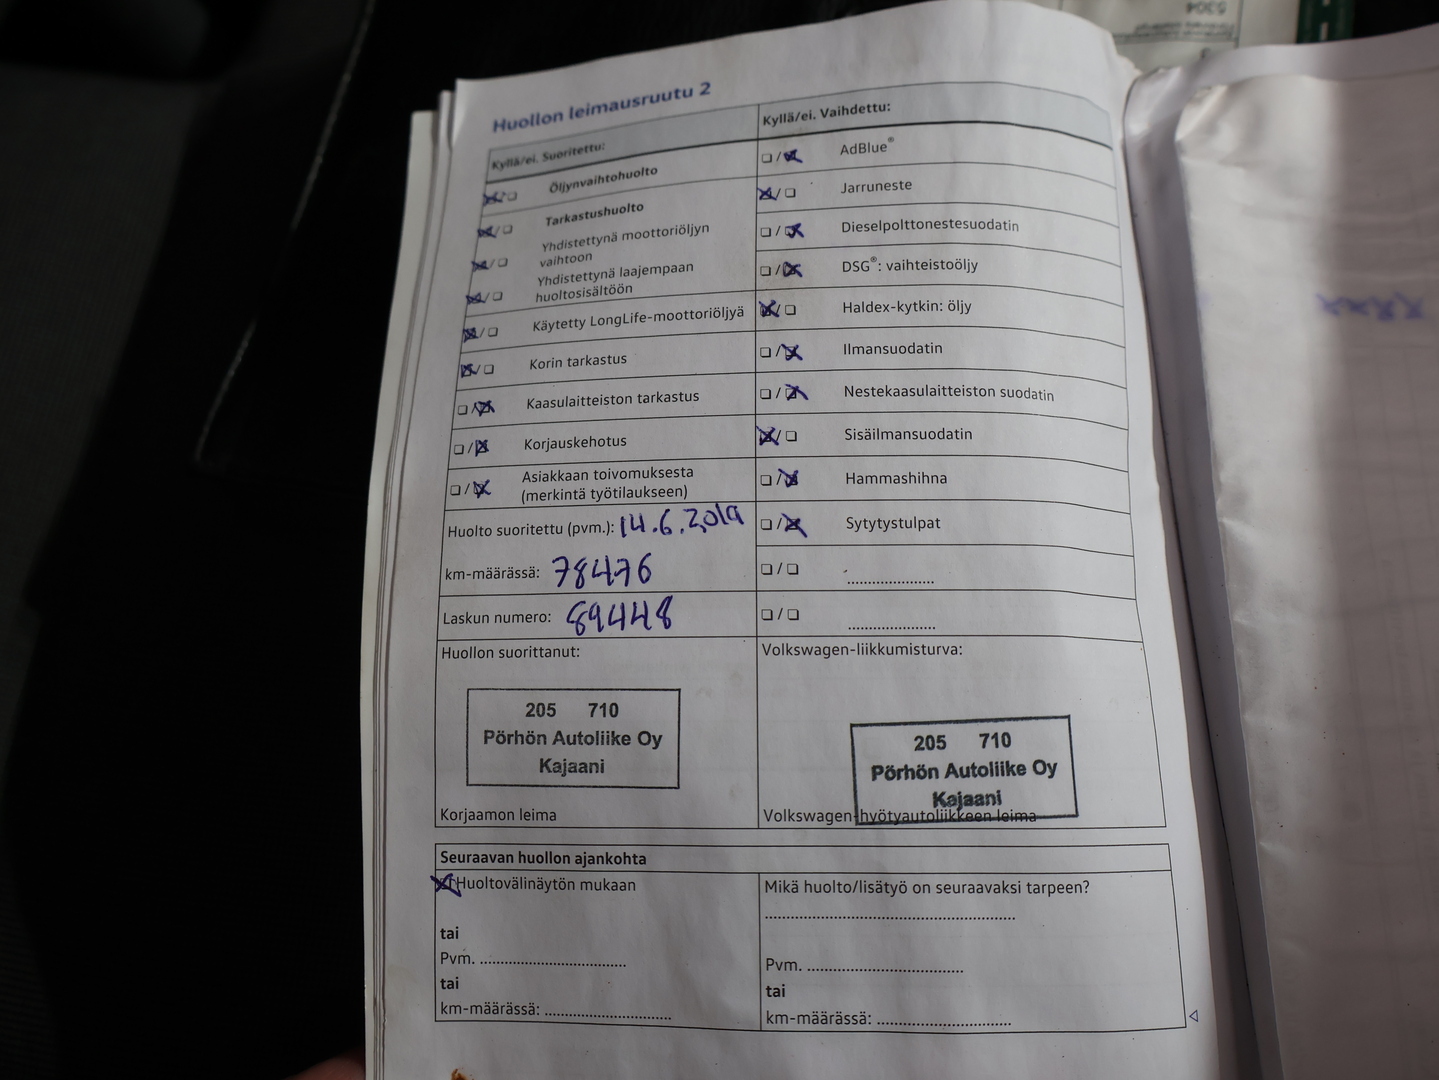 Huollon leimausruutu 2
Kyllä/ei. Suoritettu:
Öljynvaihtohuolto
Tarkastushuolto
Yhdistettynä moottoriöljyn
vaihtoon
Yhdistettynä laajempaan
huoltosisältöön
Käytetty LongLife-moottoriöljyä
Korin tarkastus
Kaasulaitteiston tarkastus
Korjauskehotus
Asiakkaan toivomuksesta
(merkintä työtilaukseen)
Huolto suoritettu (pvm.): 14.6.2019
km-määrässä: 78476
Laskun numero: 89448
Kyllä/ei. Vaihdettu:
AdBlue®
Jarruneste
Dieselpolttonestesuodatin
DSG®: vaihteistoöljy
Haldex-kytkin: öljy
Ilmansuodatin
Nestekaasulaitteiston suodatin
Sisäilmansuodatin
Hammashihna
Sytytystulpat
Huollon suorittanut:
205 710
Pörhön Autoliike Oy
Kajaani
Korjaamon leima
Volkswagen-liikkumisturva:
205 710
Pörhön Autoliike Oy
Kajaani
Volkswagen-hyötyautoliikkeen leima
Seuraavan huollon ajankohta
Huoltovälinäytön mukaan
tai
Pvm.
tai
km-määrässä:
Mikä huolto/lisätyö on seuraavaksi tarpeen?
Pvm.
tai
km-määrässä:
5304